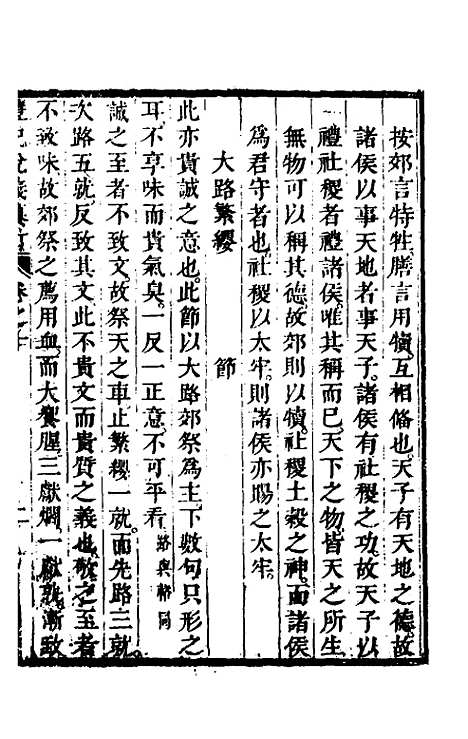 按郊言特牲膳言用犢互相偹也天子有天地之德故
諸侯以事天地者事天子諸侯有社稷之功故天子以
禮社稷者禮諸侯唯其稱而已天下之物皆天之所生
無物可以稱其德故郊則以犢社稷土穀之神而諸侯
爲君守者也社稷以太牢則諸侯亦賜之太牢
大路繁纓 節
此亦貴誠之意也此節以大路郊祭爲主下數句只形之
耳不享味而貴氣臭一反一正意不可平看 路與輅同
誠之至者不致文故祭天之車止繁纓一就而先路三就
次路五就反致其文此不貴文而貴質之義也敬之至者
不致味故郊祭之薦用血而大饗腥三獻爓一獻孰漸致